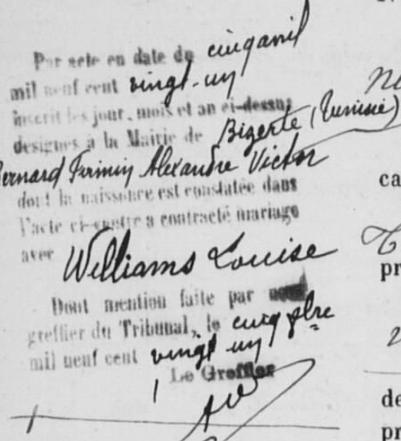 Par acte en date du cinq avril
mil neuf cent vingt-un
inscrit les jour, mois et an ci-dessus
désignés à la Mairie de Bizerte (Tunisie)
Bernard Firmin Alexandre Victor
dont la naissance est constatée dans
l'acte ci-contre a contracté mariage
avec Williams Louise
Dont mention faite par nous
greffier du Tribunal, le cinq 8bre
mil neuf cent vingt un
Le Greffier
ca
pr
de
pr